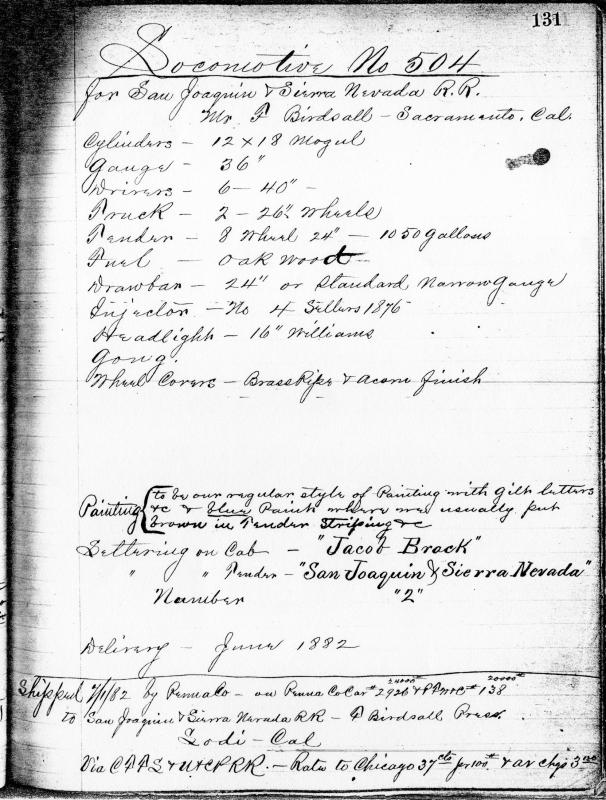 131
Locomotive No 504
for San Joaquin & Sierra Nevada R.R.
Mr F Birdsall - Sacramento, Cal.
Cylinders - 12 x 18 Mogul
Gauge - 36"
Drivers - 6 - 40" -
Truck - 2 - 26" Wheels
Tender - 8 Wheel 24" - 1050 gallons
Fuel - Oak Wood
Drawbar - 24" or Standard Narrow Gauge
Injector - No 4 Sellers 1876
Headlight - 16" Williams
Gong.
Wheel Covers - Brass Pipe & acorn finish
Painting { to be our regular style of Painting with gilt letters
&c & blue Paint where we usually put
brown in Tender Striping &c
Lettering on Cab - "Jacob Brack"
" " Tender - "San Joaquin & Sierra Nevada"
Number "2"
Delivery - June 1882
Shipped 7/1/82 by Penna Co - on Penna Co Car # 2926 24000# & 138 20000#
to San Joaquin & Sierra Nevada RR - F Birdsall Pres.
Lodi - Cal
Via & U & C P RR. - Rate to Chicago 37 cts per 100 # & av chgs